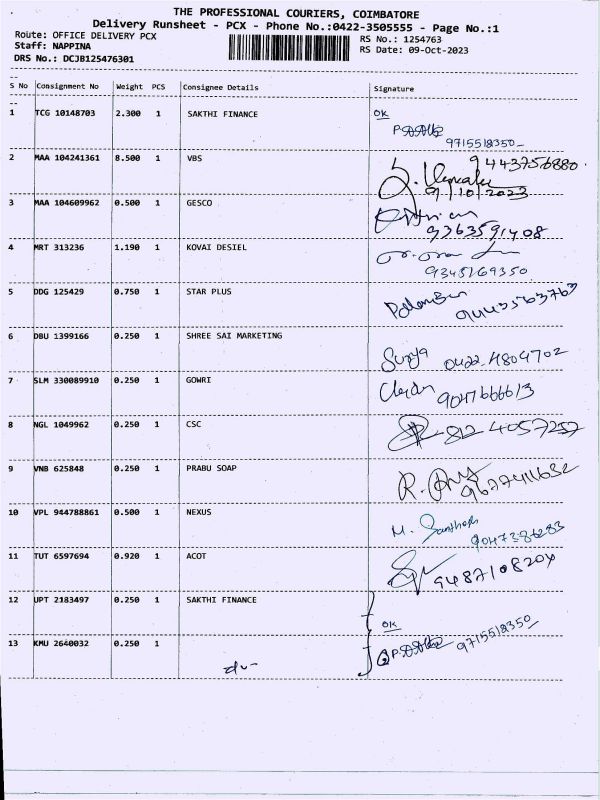 THE PROFESSIONAL COURIERS, COIMBATORE
Delivery Runsheet - PCX - Phone No.:0422-3505555 - Page No.:1
Route: OFFICE DELIVERY PCX
RS No.: 1254763
Staff: NAPPINA
RS Date: 09-Oct-2023
DRS No.: DCJB125476301
S No Consignment No Weight PCS Consignee Details Signature
1 TCG 10148703 2.300 1 SAKTHI FINANCE OK
9715518350
2 MAA 104241361 8.500 1 VBS 9443756880
9/10/2023
3 MAA 104609962 0.500 1 GESCO
9363591408
4 MRT 313236 1.190 1 KOVAI DESIEL
9345169350
5 DDG 125429 0.750 1 STAR PLUS
9443563763
6 DBU 1399166 0.250 1 SHREE SAI MARKETING
Surya 0422-4804702
7 SLM 330089910 0.250 1 GOWRI
9047666613
8 NGL 1049962 0.250 1 CSC
812 4057257
9 VNB 625848 0.250 1 PRABU SOAP
R.
9627411632
10 VPL 944788861 0.500 1 NEXUS
M. Santhosh
9047386283
11 TUT 6597694 0.920 1 ACOT
9487108204
12 UPT 2183497 0.250 1 SAKTHI FINANCE
OK
13 KMU 2640032 0.250 1
9715518350